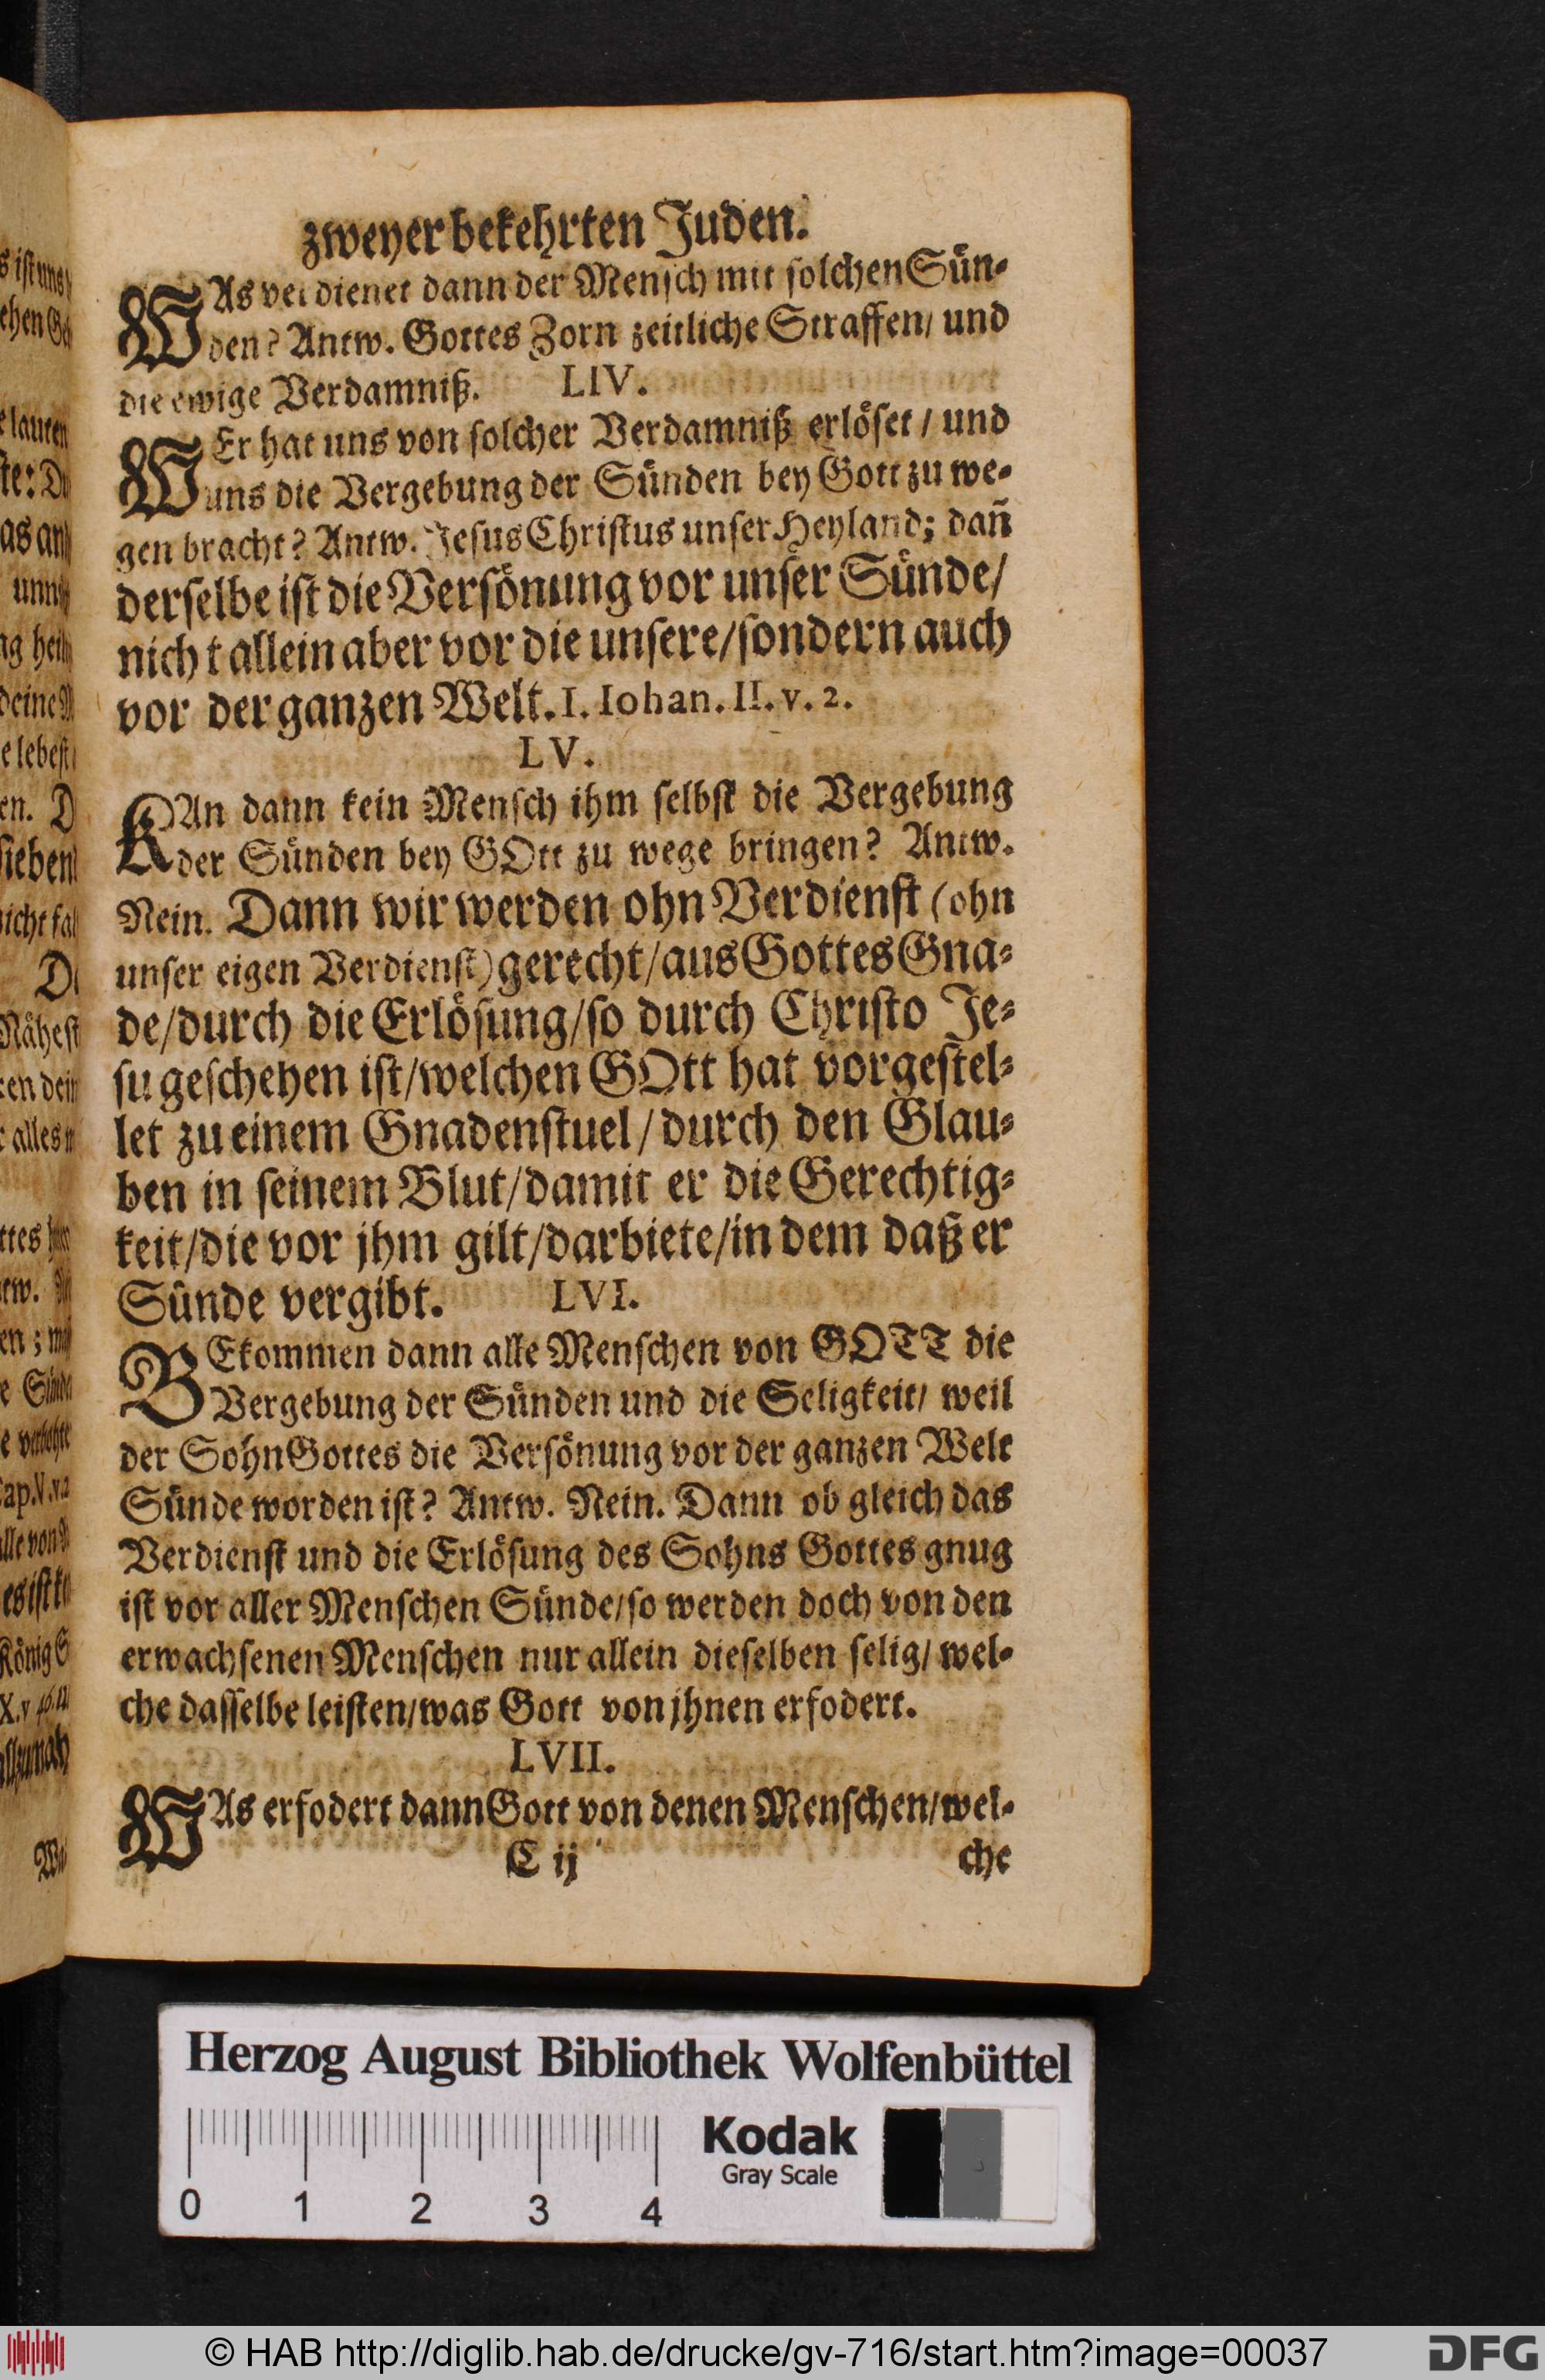 zweyer bekehrten Juden.
WAs verdienet dann der Mensch mit solchen Sün-
den? Antw. Gottes Zorn zeitliche Straffen/ und
die ewige Verdamniß. LIV.
WEr hat uns von solcher Verdamniß erlöset / und
uns die Vergebung der Sünden bey Gott zu we-
gen bracht? Antw. Jesus Christus unser Heyland; dañ
derselbe ist die Versönung vor unser Sünde/
nicht allein aber vor die unsere/sondern auch
vor der ganzen Welt. I. Iohan. II. v. 2.
LV.
KAn dann kein Mensch ihm selbst die Vergebung
der Sünden bey GOtt zu wege bringen? Antw.
Nein. Dann wir werden ohn Verdienst (ohn
unser eigen Verdienst) gerecht/aus Gottes Gna-
de/durch die Erlösung/so durch Christo Je-
su geschehen ist/welchen GOtt hat vorgestel-
let zu einem Gnadenstuel/durch den Glau-
ben in seinem Blut/damit er die Gerechtig-
keit/die vor jhm gilt/darbiete/in dem daß er
Sünde vergibt. LVI.
BEkommen dann alle Menschen von GOTT die
Vergebung der Sünden und die Seligkeit/ weil
der Sohn Gottes die Versönung vor der ganzen Welt
Sünde worden ist? Antw. Nein. Dann ob gleich das
Verdienst und die Erlösung des Sohns Gottes gnug
ist vor aller Menschen Sünde/so werden doch von den
erwachsenen Menschen nur allein dieselben selig/ wel-
che dasselbe leisten/was Gott von jhnen erfodert.
LVII.
WAs erfodert dann Gott von denen Menschen/wel-
C ij che
Herzog August Bibliothek Wolfenbüttel
Kodak
Gray Scale
0 1 2 3 4
© HAB http://diglib.hab.de/drucke/gv-716/start.htm?image=00037
DFG